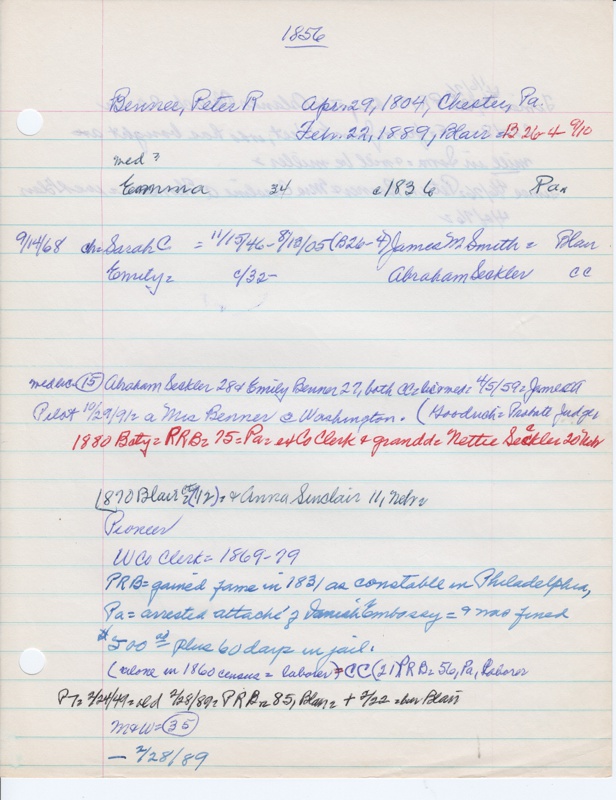 1856
Benner, Peter R Apr. 29, 1804, Chester, Pa.
Feb. 22, 1889, Blair = B 26-4 9/10
med?
Emma 34 c1836 Pa.
9/14/68 ch = Sarah C = 11/15/46 - 8/10/05 (B26-4) James M Smith = Blair
Emily = c/32 - Abraham Seckler CC
(15) Abraham Seckler 28 & Emily Benner 27, both CC = 4/5/59 = James
Pilot 10/29/91 = a Mrs Benner @ Washington. (Goodrich = Probate Judge,
1880 Baty = PRB = 75 = Pa = ex Co Clerk & grandd = Nettie Seckler 20 Neb
1870 Blair (12) = & Anna Sinclair 11, Neb =
Pioneer
W Co Clerk = 1869-79
PRB = gained fame in 1831 as constable in Philadelphia,
Pa = arrested attaché of Danish Embassy = & was fined
$500 00 plus 60 days in jail.
(alone in 1860 census = laborer) = CC (21) PRB = 56, Pa, Laborer
2/24/49 = old 2/28/89 = PRB = 85, Blair = + 2/22 = Blair
M&W = (35)
- 2/28/89